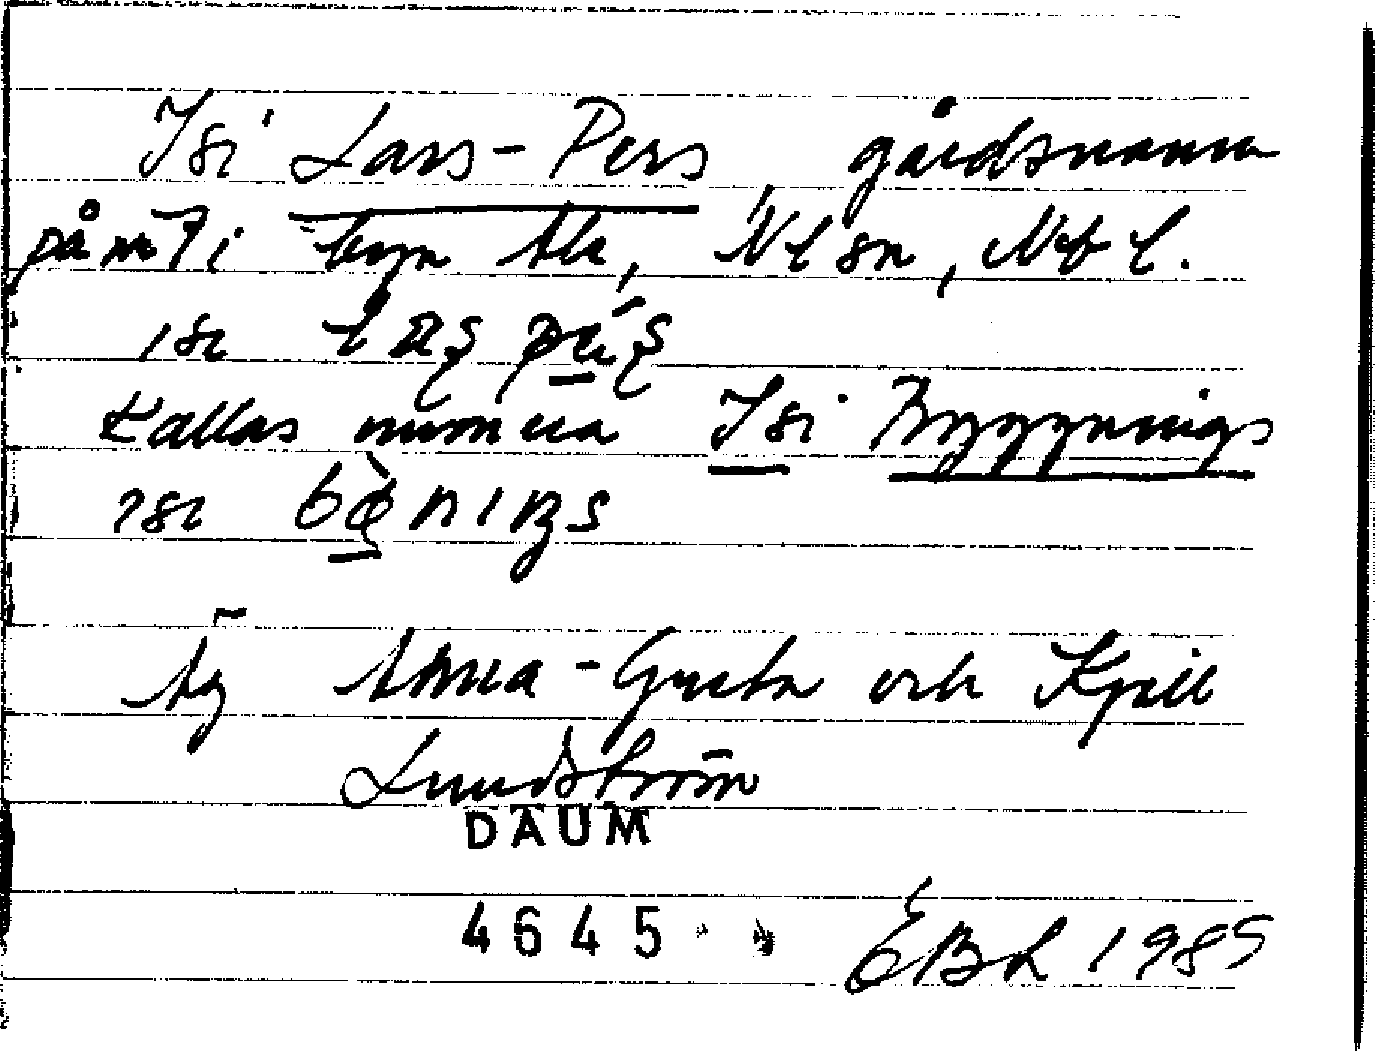 Isi Lars-Pers, gårdsnamn
på nr 7 i byn Ala, Nl sn, Nb l.
ısı
Kallas numera Isi Byggnings
ısı
Äg Anna-Greta och Kjell
Lundström
DAUM
4645
EBL 1985